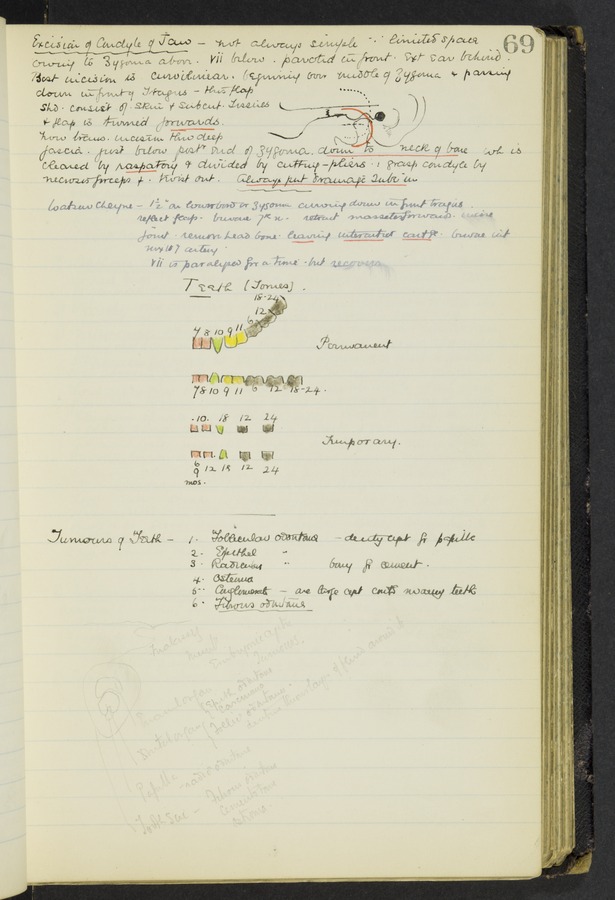 69
Excision of Condyle of Jaw – not always simple ∵ limited space
owing to Zygoma above. VII below. parotid in front. Ext ear behind.
Best incision is curvilinear. beginning over middle of Zygoma & passing
down in front of Tragus – this flap
shd. consist of skin & subcut. tissues
& flap is turned forwards.
now trans. incision thro deep
fascia. just below post end of Zygoma. down to neck of bone wh is
cleared by raspatory & divided by cutting-pliers. grasp condyle by
necrosis forceps & twist out. Always put drainage tube in
Watson Cheyne – 1½" on lower bord of Zygoma curving down in front tragus.
reflect flap. beware 7th n. retract masseter forward.
joint. remove head bone. leaving interartic cartge. beware int
maxill artery.
VII is paralysed for a time. but recovers.
Teeth (Tomes).
18-24
12
6
7 8 10 9 11
Permanent
7 8 10 9 11 6 12 18-24.
.10. 18 12 24
Temporary.
6
9 12 18 12 24
mos.
Tumours of Teeth – 1. Follicular odontome – dentig cyst fr papilla
2. Epithel "
3. Radicular " bony fr cement.
4. Osteoma
5. – are large cyst conts many teeth
6. Fibrous odontome
Anatomy
Tumours.
Enamel organ
Papilla – radic odontome
Tooth Sac – Fibrous odontome